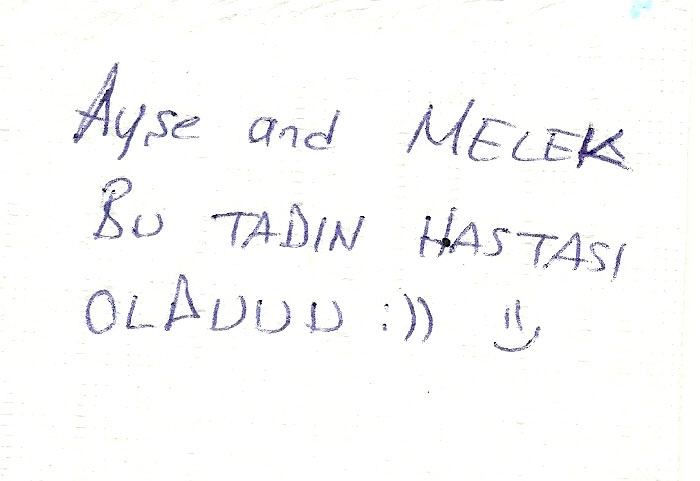 Ayşe and MELEK
BU TADIN HASTASI
OLDUUUU :))